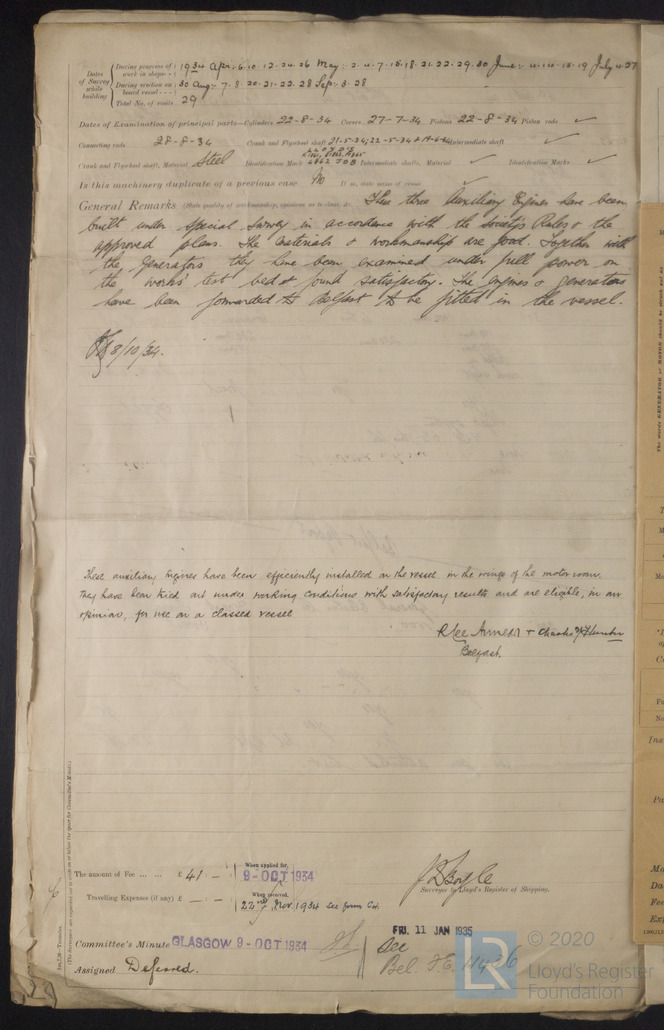 Dates of Survey while building
During progress of work in shops - - 1934 Apr: 6.10.12.24.26 May: 2.4.7.15.18.21.22.29.30 June:
During erection on board vessel - - - 30 Aug: 7.8.20.21.22.28 Sep: 3.28
Total No. of visits 29
Dates of Examination of principal parts—Cylinders 22-8-34 Covers 27-7-34 Pistons 22-8-34 Piston rods ✓
Connecting rods 28-8-34 Crank and Flywheel shaft 21-5-34; 22-5-34 Intermediate shaft ✓
Crank and Flywheel shaft, Material Steel Identification Mark Intermediate shafts, Material ✓ Identification Marks ✓
Is this machinery duplicate of a previous case No If so, state name of vessel ✓
General Remarks (State quality of workmanship, opinions as to class, &c. These three Auxiliary Engines have been
built under special survey in accordance with the Society's Rules & the
approved plans. The materials & workmanship are good. Together with
the generators they have been examined under full power on
the works' test bed & found satisfactory. The engines & generators
have been forwarded to Belfast to be fitted in the vessel.
8/10/34.
These auxiliary engines have been efficiently installed on the vessel in the wings of the motor room.
They have been tried out under working conditions with satisfactory results and are eligible, in our
opinion, for use on a classed vessel
R. Lee & Charles Hunter
Belfast.
The amount of Fee ... ... £ 41 : - : When applied for,
9-OCT 1934
Travelling Expenses (if any) £ — : - : When received,
22nd Nov. 1934 See form
Surveyor to Lloyd's Register of Shipping.
Committee's Minute GLASGOW 9-OCT 1934
FRI. 11 JAN 1935
Assigned Deferred.
See
Bel. F.E.
LR
© 2020
Lloyd's Register
Foundation